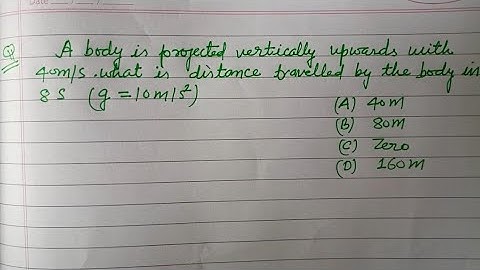 Date
Q A body is projected vertically upwards with
40m/s. what is distance travelled by the body in
8 s (g = 10 m/s²)
(A) 40m
(B) 80m
(C) Zero
(D) 160m